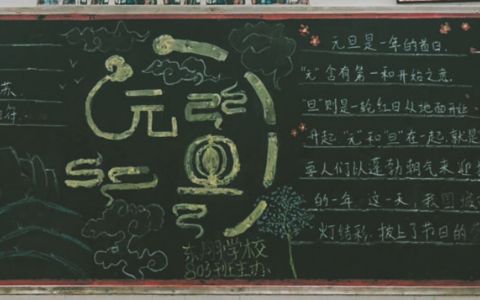 苏
元旦
东湖学校
803班主办
元旦是一年的首日.
"元"含有第一和开始之意.
"旦"则是一轮红日从地面升起.
升起."元"和"旦"在一起,就是
要人们以蓬勃朝气来迎
的一年.这一天,我国城
灯结彩,披上了节日的